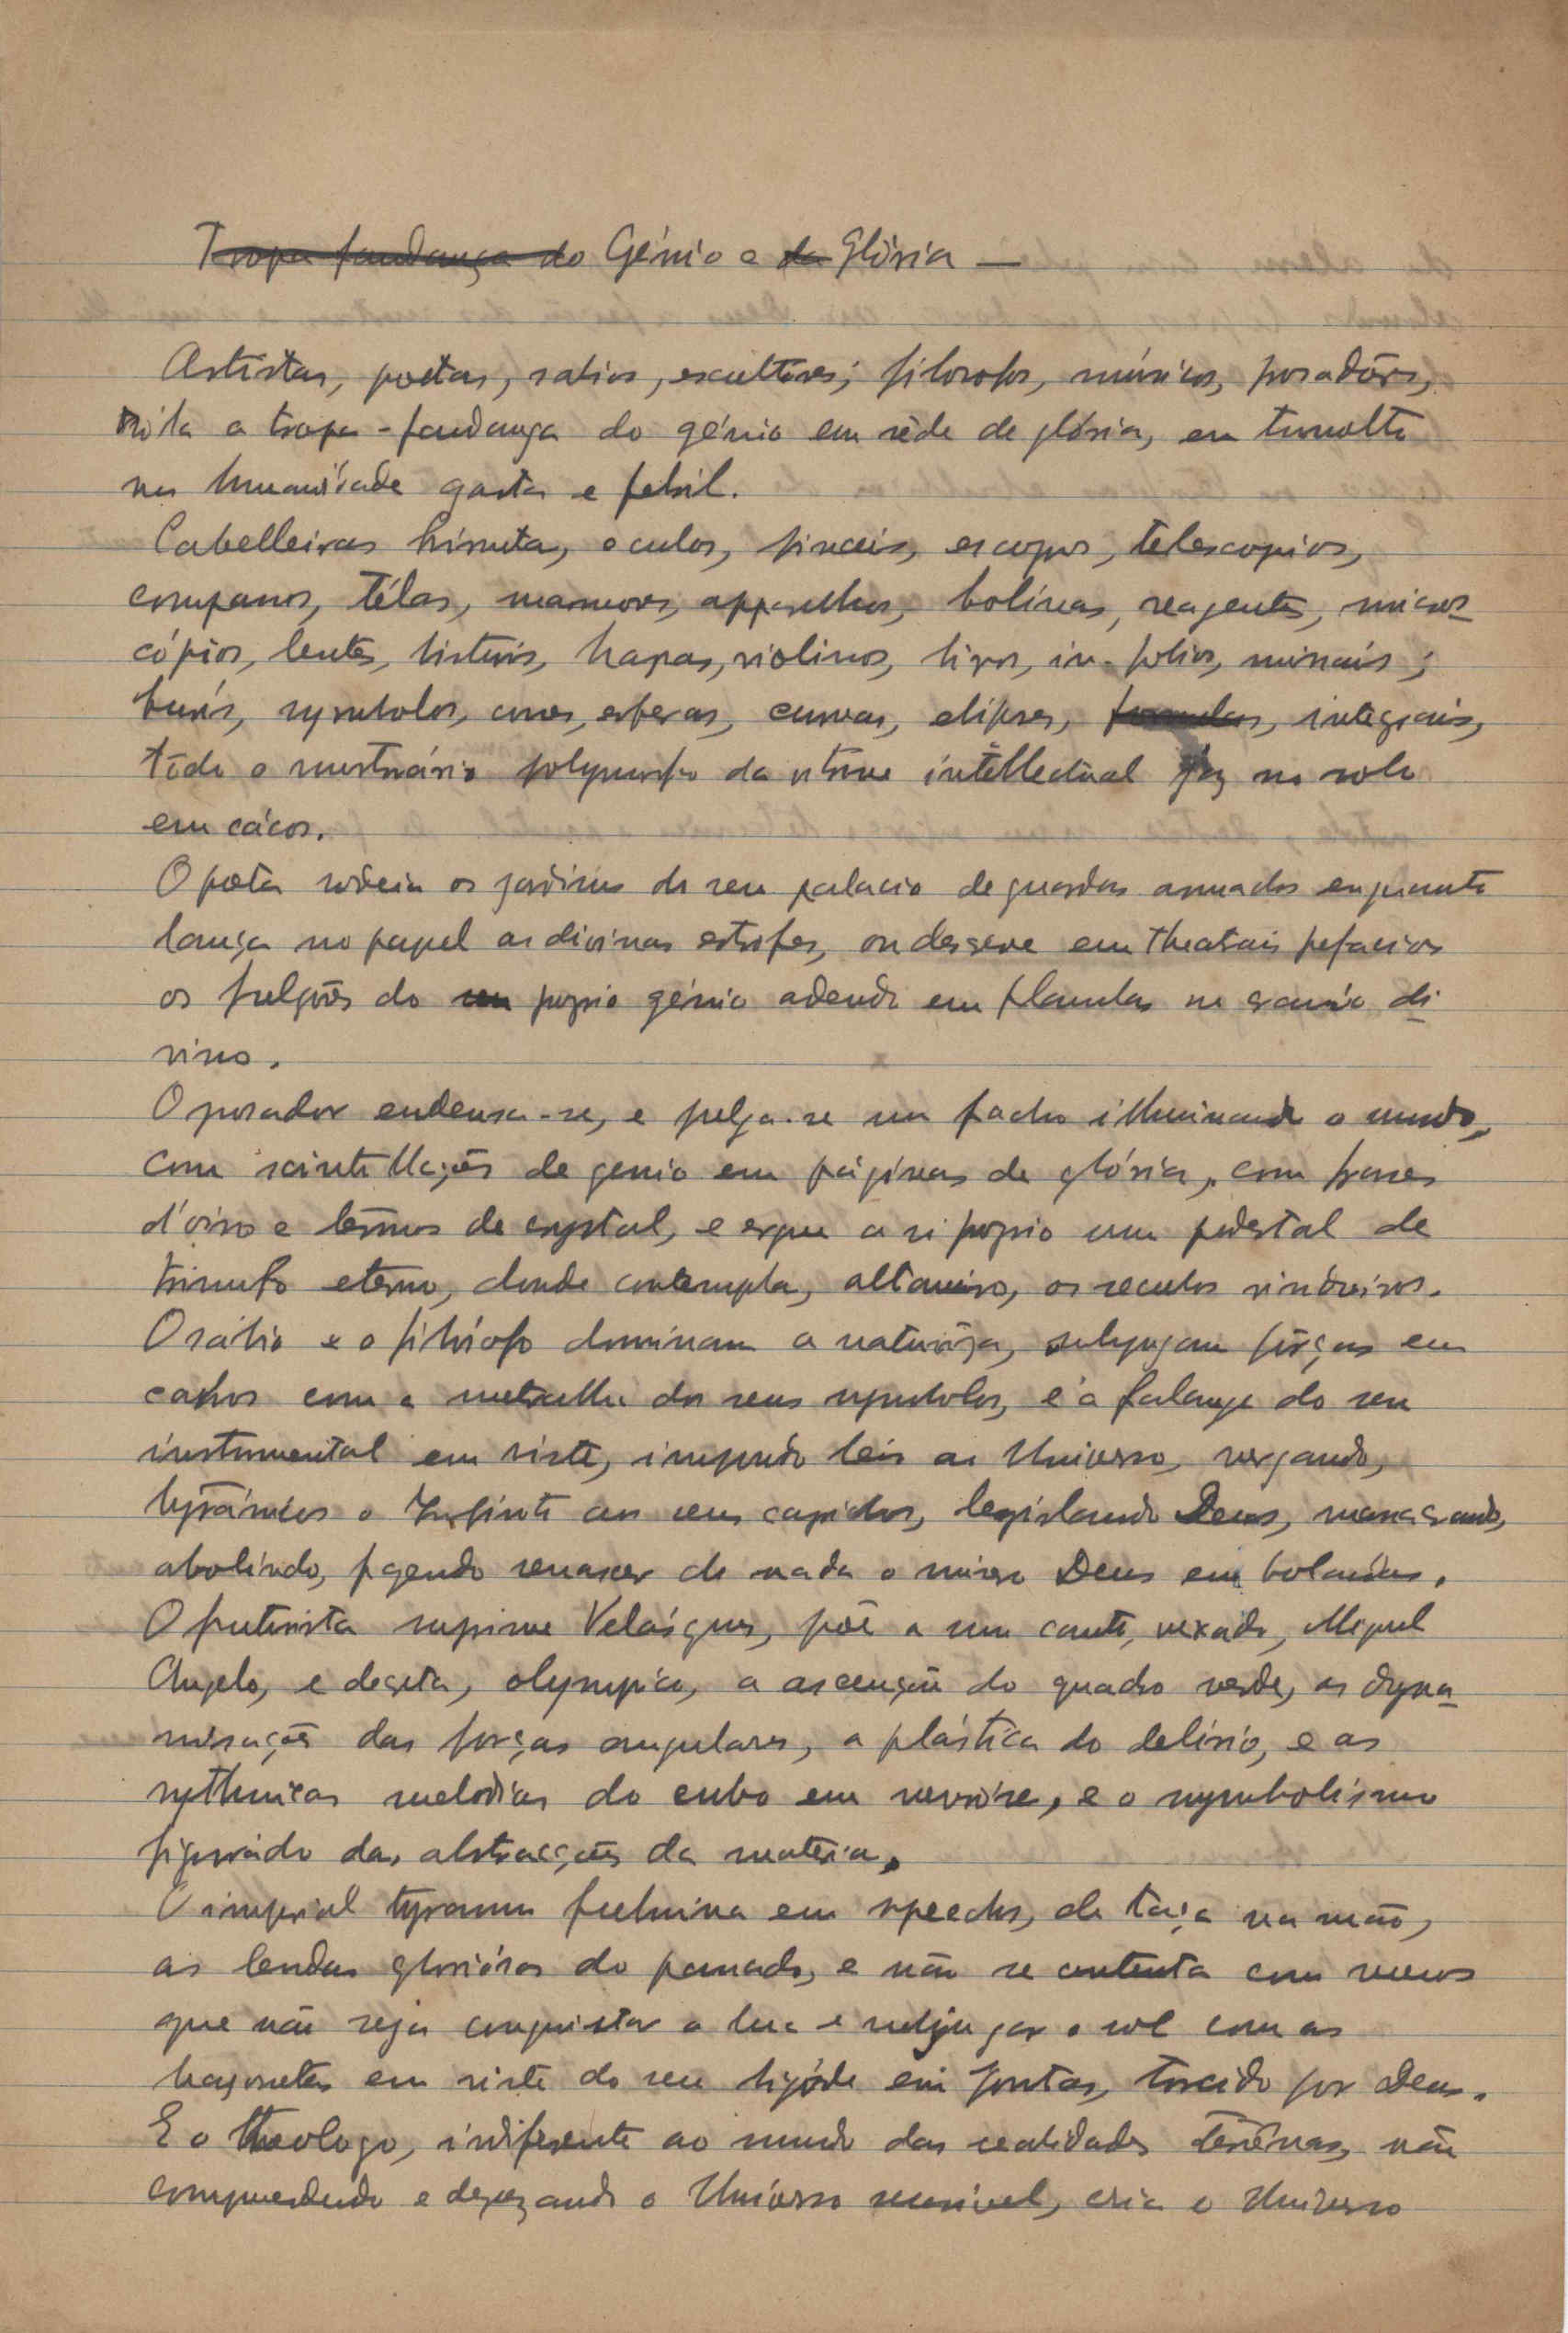 Tropa fandanga do Génio e da Glória —
Artistas, poetas, sabios, escultores; filosofos, músicos, prosadôres,
a tropa-fandanga do génio em sêde de glória, em tumulto
na humanidade gasta e febril.
Cabelleiras hirsutas, oculos, pinceis, escopros, telescopios,
compassos, télas, marmores, apparelhos, bobinas, reagentes, micros-
cópios, lentes, bisturis, harpas, violinos, livros, in-folios, missais;
buris, symbolos, cones, esferas, curvas, elipses, formulas, integrais,
tôdo o mostruário polymorfo da vitrine intellectual jáz no solo
em cácos.
O poeta rodeia os jardins do seu palacio de guardas armados enquanto
lança no papel as divinas estrofes, ou descreve em theatrais prefacios
os fulgôres do seu proprio génio ardendo em flamulas no craneo di-
vino.
O prosador endeusa-se, e julga-se um facho illuminando o mundo,
com scintillações de genio em páginas de glória, com frases
d'oiro e termos de crystal, e ergue a si proprio um pedestal de
triunfo eterno, donde contempla, altaneiro, os seculos vindoiros.
O sábio e o filósofo dominam a naturêza, subjugam fôrças em
cachos com a metralha dos seus symbolos, e a falange do seu
instrumental em riste, impondo leis ao Universo, vergando,
tyrânicos o Infinito aos seus caprichos, legislando Deus, massacrando,
abolindo, fazendo renascer do nada o misero Deus em bolandas.
O futurista suprime Velásques, põe a um canto, vexado, Miguel
Angelo, e decreta, olympico, a ascenção do quadro verde, as dyna-
misações das forças angulares, a plástica do delirio, e as
rythmicas melodias do cubo em nevróse, e o symbolismo
figurado das abstracções da materia.
O imperial tyranno fulmina em speechs, de taça na mão,
as lendas gloriósas do passado, e não se contenta com menos
que não seja conquistar a lua e subjugar o sol com as
bayonetas em riste do seu bigóde em pontas, torcido por Deus.
E o theologo, indiferente ao mundo das realidades terrênas, não
comprehendendo e desprezando o Universo sensivel, cria o Universo